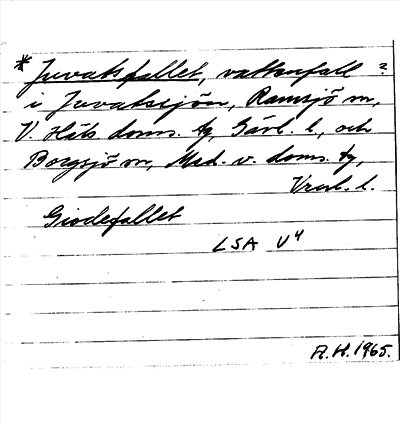 * Juvatsfallet, vattenfall ?
i Juvatssjön, Ramsjö sn,
V. Häls doms. tg, Gävl. l., och
Borgsjö sn, Med. v. doms. tg,
Vrnl. l.
Giodefallet
LSA U4
A.H. 1965.